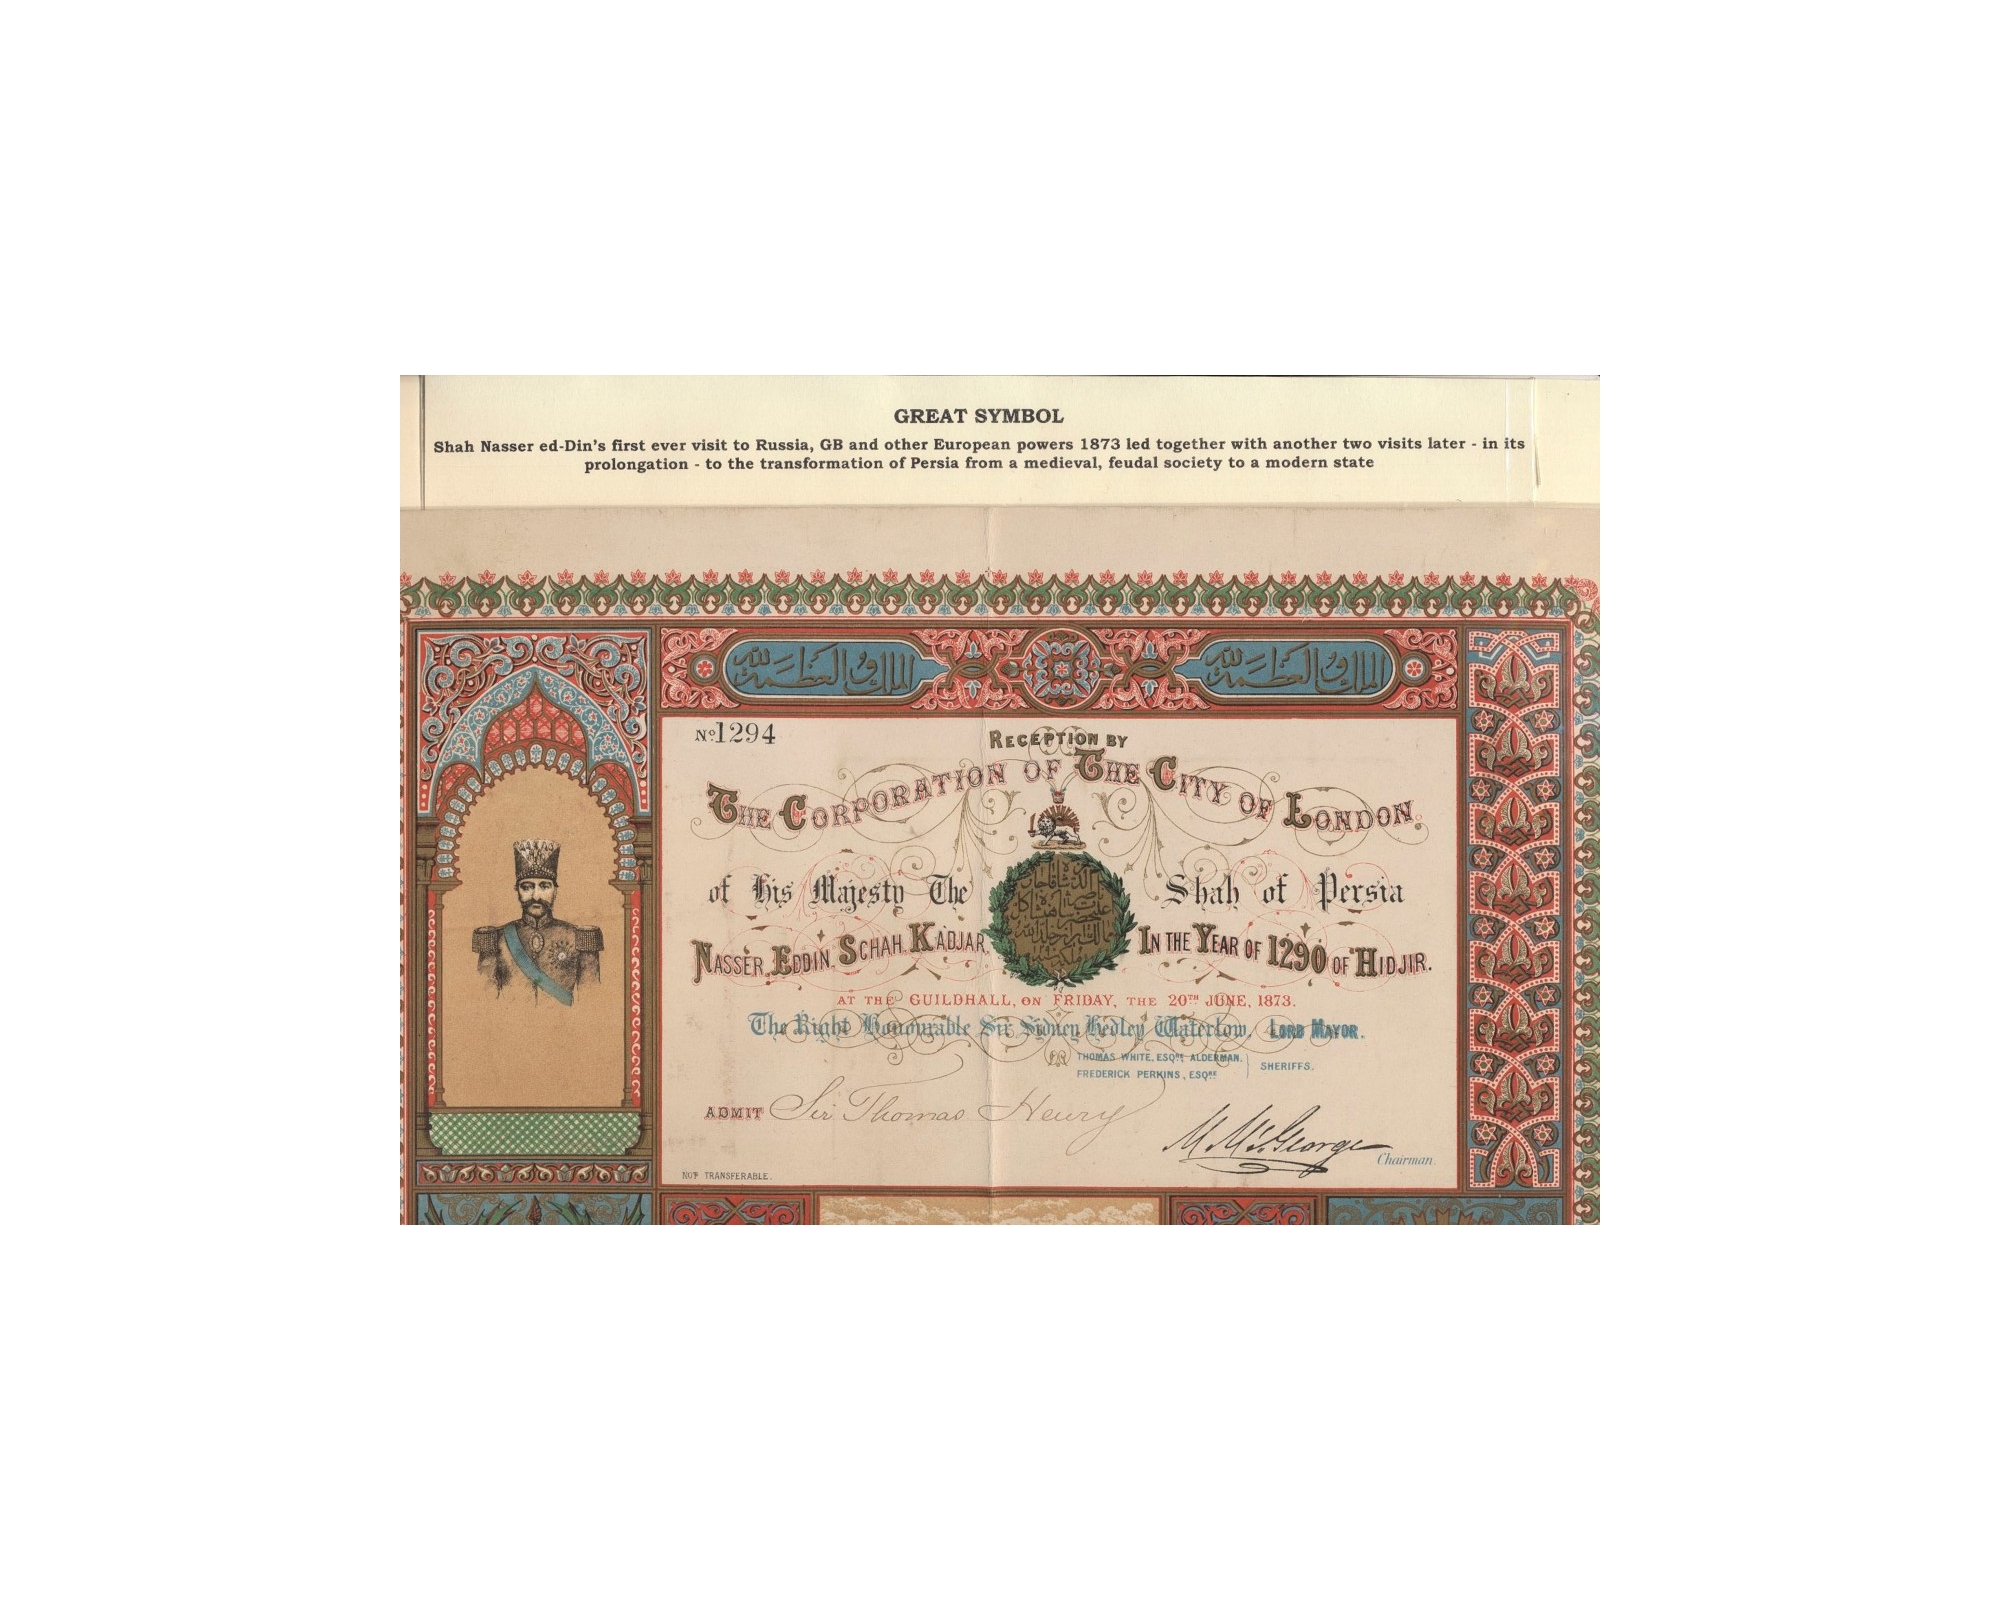 GREAT SYMBOL
Shah Nasser ed-Din's first ever visit to Russia, GB and other European powers 1873 led together with another two visits later - in its
prolongation - to the transformation of Persia from a medieval, feudal society to a modern state
الملك والعظمة لله الملك والعظمة لله
Nº 1294
RECEPTION BY
THE CORPORATION OF THE CITY OF LONDON
of His Majesty The Shah of Persia
NASSER. EDDIN. SCHAH. KADJAR. IN THE YEAR OF 1290 OF HIDJIR.
AT THE GUILDHALL, ON FRIDAY, THE 20TH JUNE, 1873.
The Right Honourable Sir Sidney Hedley Waterlow, LORD MAYOR.
THOMAS WHITE, ESQRE ALDERMAN.
FREDERICK PERKINS, ESQRE
SHERIFFS.
ADMIT Sir Thomas Henry
M. McGeorge
Chairman.
NOT TRANSFERABLE.